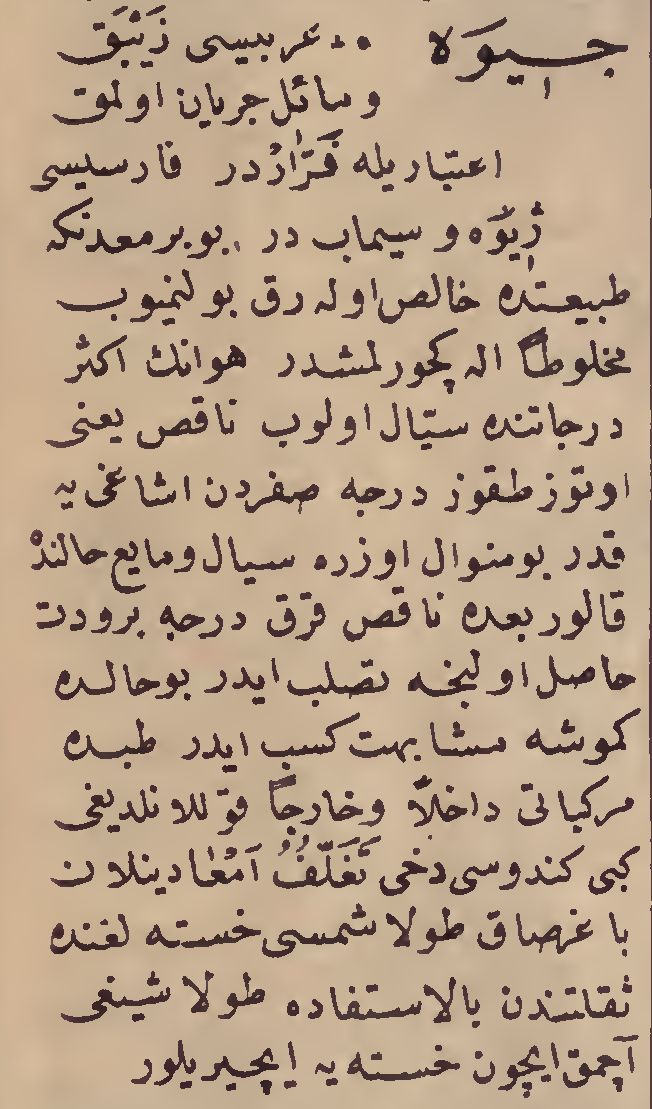 جيوه ٠٠ عربيسى زَيْبَقْ
وسائل جريان اولمق
اعتباريله فَرَّارْدر فارسيسى
ژِيوَه و سيماب در . بو بر معدنكه
طبيعتده خالص اوله رق بولنميوب
مخلوطاً اله كچورلمشدر هوانك اكثر
درجاتنده سيّال اولوب ناقص يعنى
اوتوز طقوز درجه صفردن اشاغى يه
قدر بو منوال اوزره سيال و مايع حالنده
قالور بعده ناقص قرق درجه برودت
حاصل اولنجه تصلب ايدر بو حالده
كموشه مشابهت كسب ايدر طبده
مركباتى داخلاً و خارجاً قوللانلديغى
كبى كندوسى دخى تَغَلُّفُ اَمْعٰا دينلان
باغرصاق طولاشمسى خسته لغنده
ثقلتندن بالاستفاده طولاشيغى
آچمق ايچون خسته يه ايچيريلور